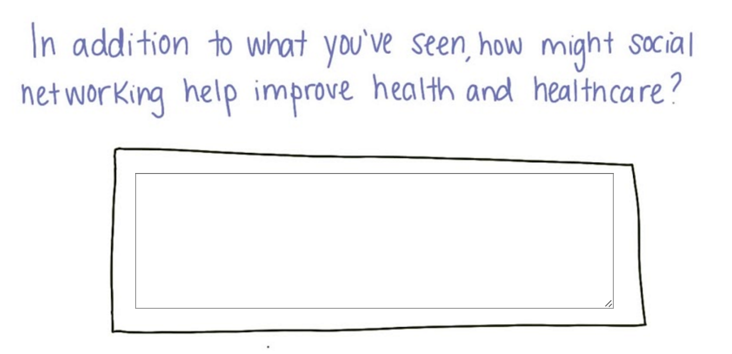 In addition to what you've seen, how might social
networking help improve health and healthcare?